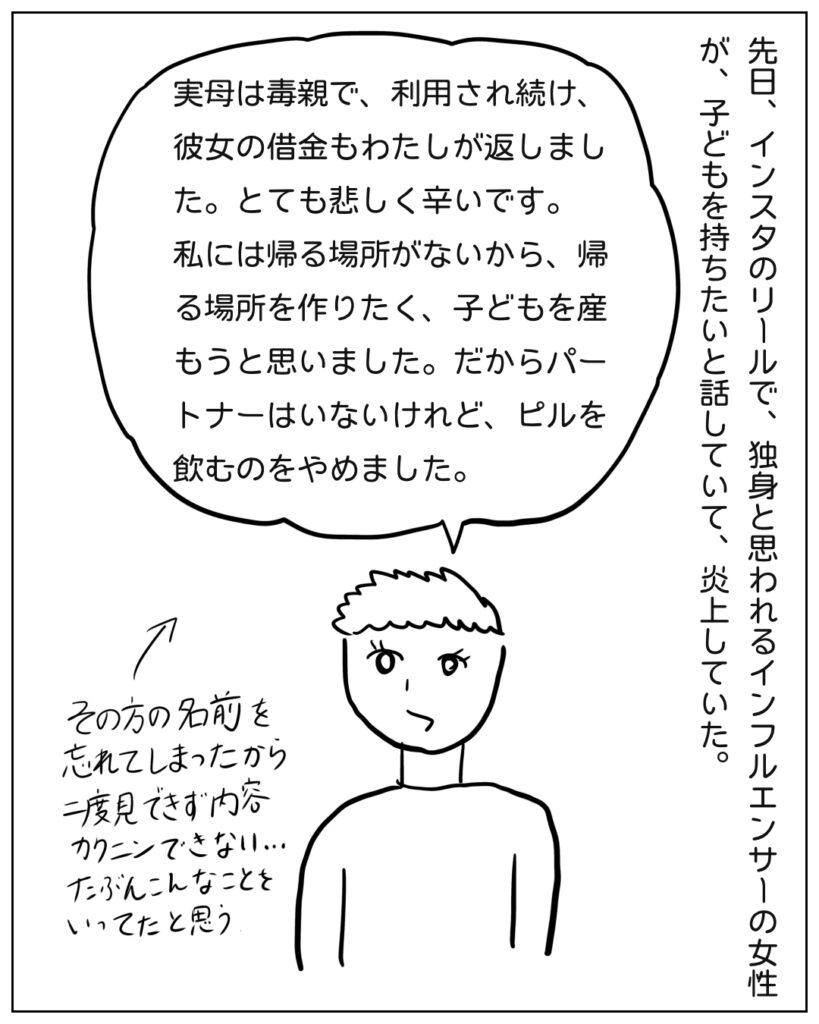 先日、インスタのリールで、独身と思われるインフルエンサーの女性
が、子どもを持ちたいと話していて、炎上していた。
実母は毒親で、利用され続け、
彼女の借金もわたしが返しまし
た。とても悲しく辛いです。
私には帰る場所がないから、帰
る場所を作りたく、子どもを産
もうと思いました。だからパー
トナーはいないけれど、ピルを
飲むのをやめました。
その方の名前を
忘れてしまったから
二度見できず内容
カクニンできない…
たぶんこんなことを
いってたと思う